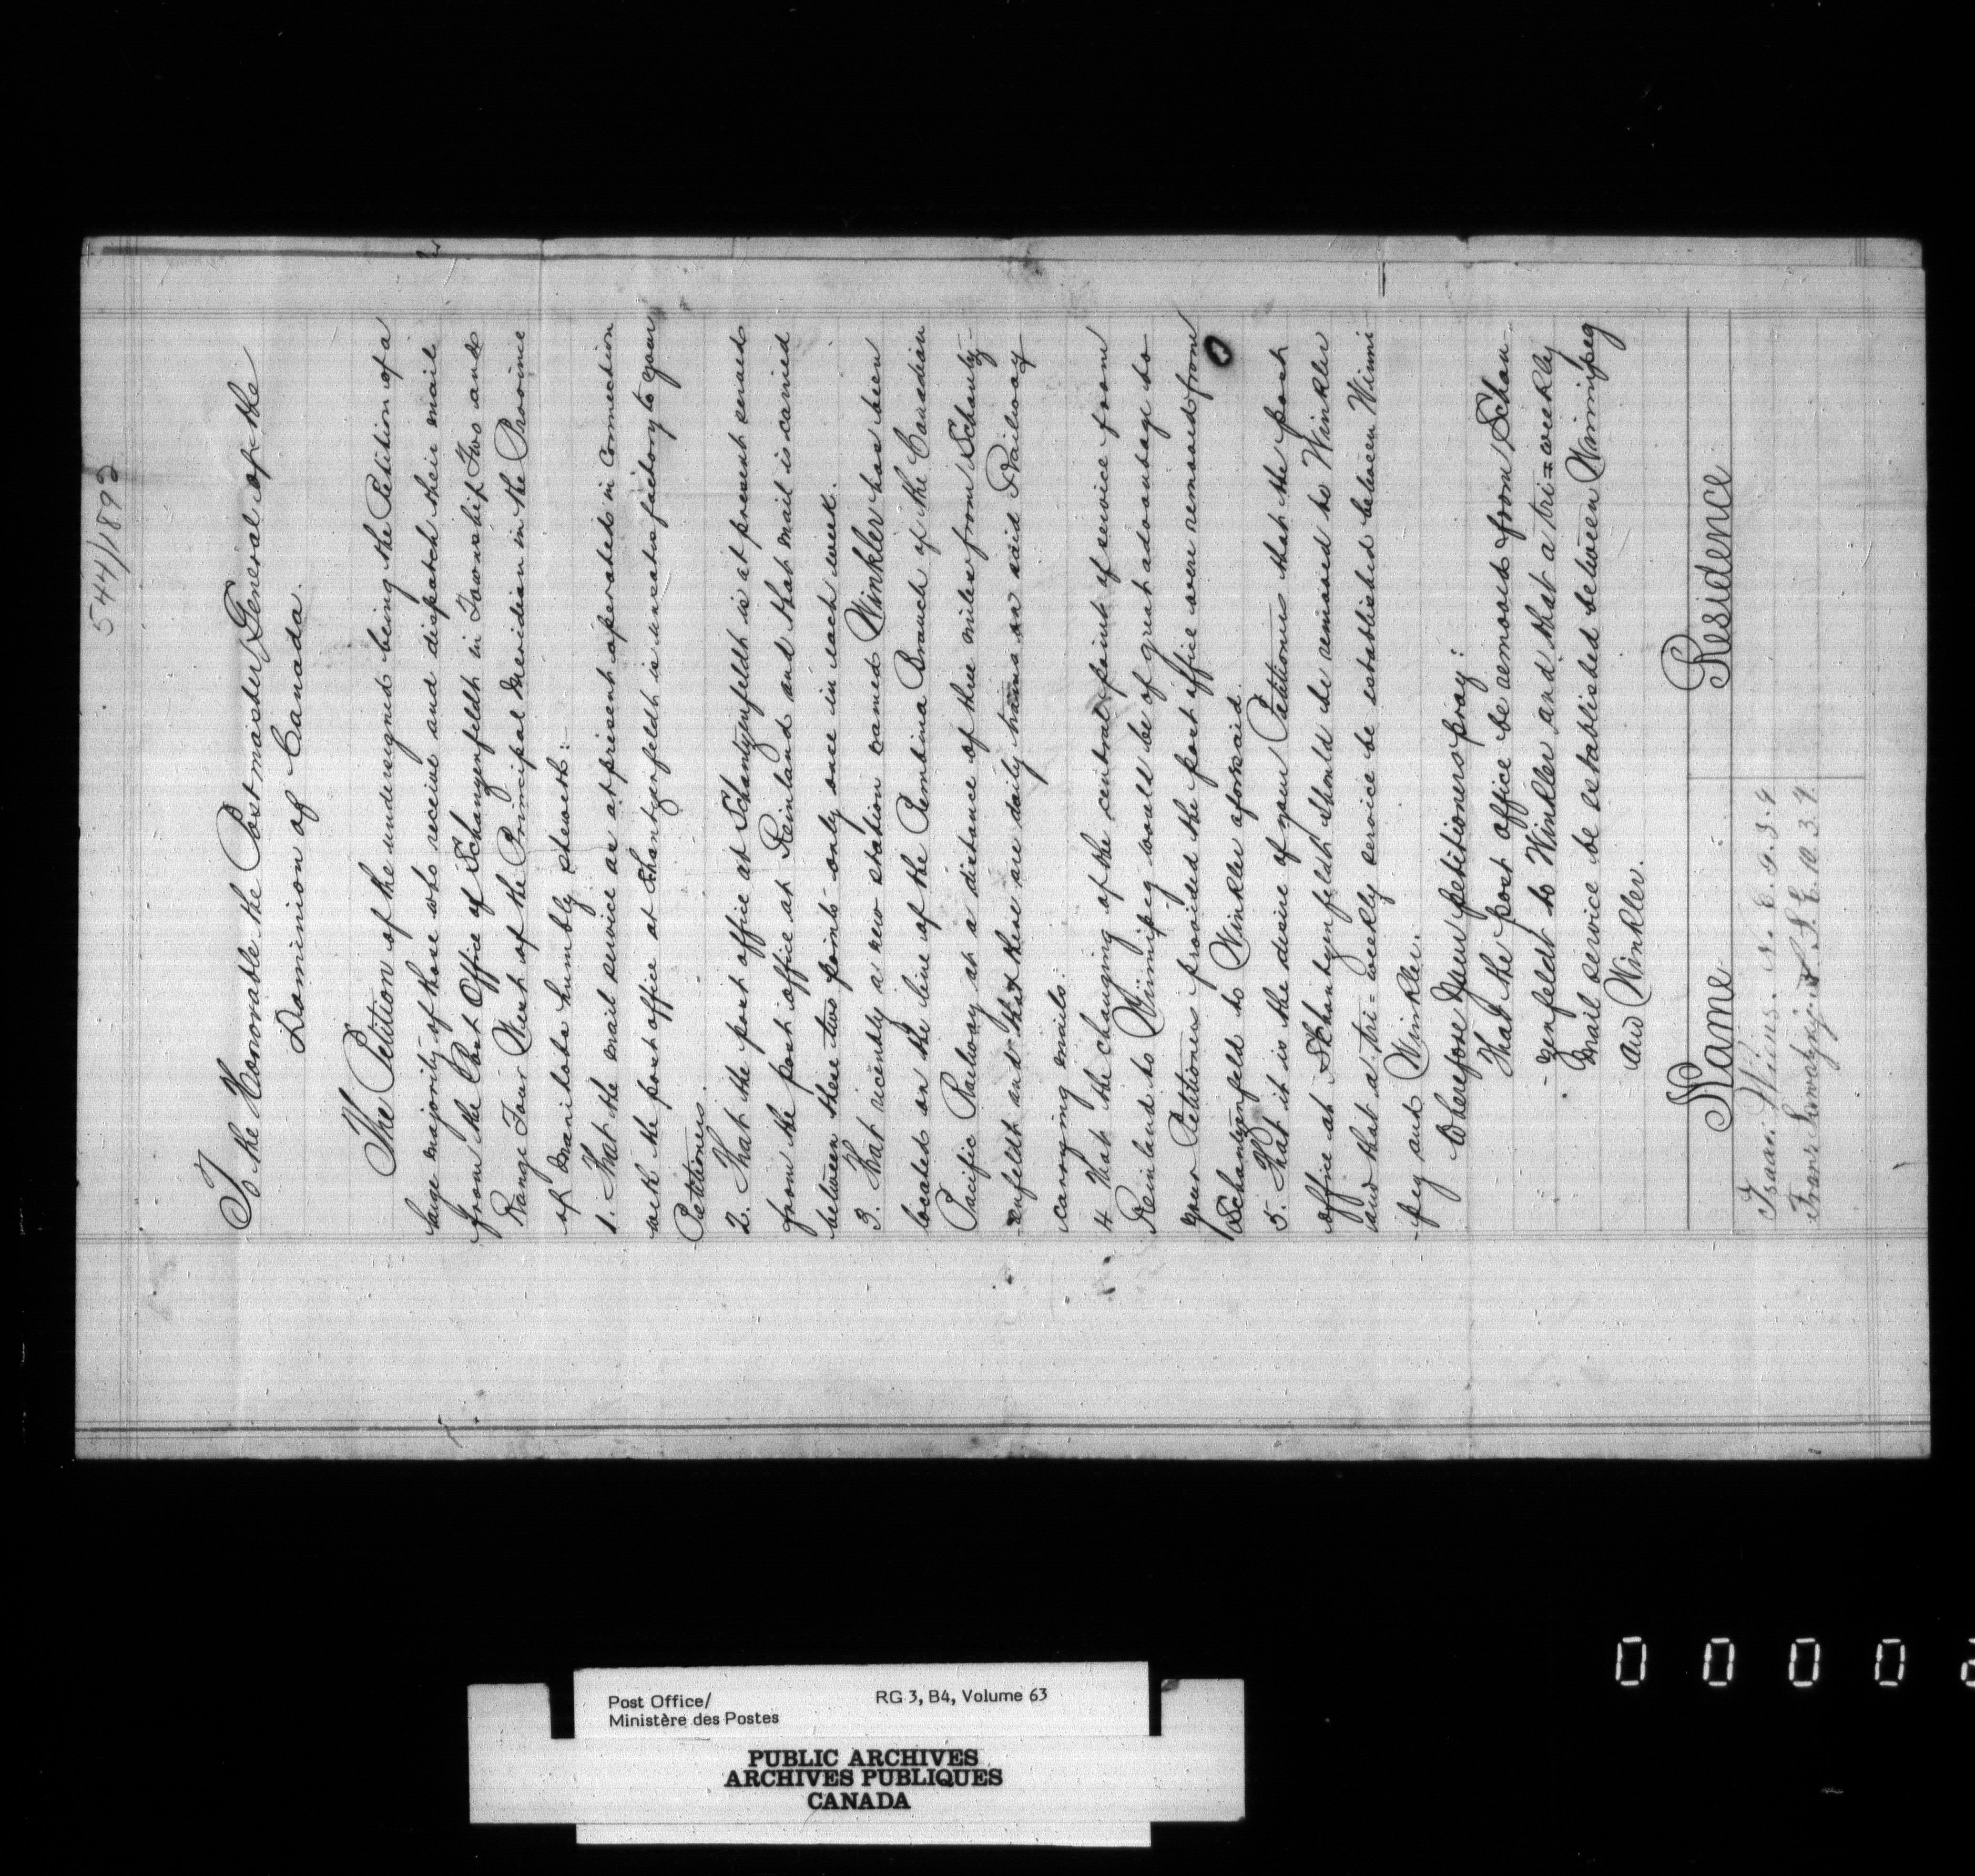 544/1892
To the Honorable the Postmaster General of the
Dominion of Canada.
The Petition of the undersigned being the Petition of a
large majority of those who receive and dispatch their mail
from the Post Office of Schanzenfeldt in Township Two and
Range Four West of the Principal Meridian in the Province
of Manitoba humbly sheweth:-
1. That the mail service as at present operated in connection
with the post office at Schantzenfeldt is unsatisfactory to your
Petitioners.
2. That the post office at Schantzenfeldt is at present served
from the post office at Reinland and that mail is carried
between there two points only once in each week.
3. That recently a new station named Winkler has been
located on the line of the Pembina Branch of the Canadian
Pacific Railway at a distance of three miles from Schantz-
enfeldt and that there are daily trains on said Railway
carrying mails.
4 That the changing of the central point of service from
Reinland to Winnipeg would be of great advantage to
your Petitioners provided the post office were removed from
Schantzenfeld to Winkler aforesaid.
5. That it is the desire of your Petitioners that the post
office at Schantzenfeldt should be removed to Winkler
and that a tri=weekly service be established between Winni
-peg and Winkler.
Wherefore Your petitioners pray:
That the post office be removed from Schan-
-zenfeldt to Winkler and that a tri=weekly
Mail service be established between Winnipeg
and Winkler.
Name Residence
Isaac Wiens. N. E. 9. 3. 4
Franz S. E. 10. 3. 4.
Post Office/
Ministère des Postes
RG 3, B4, Volume 63
PUBLIC ARCHIVES
ARCHIVES PUBLIQUES
CANADA
0 0 0 0